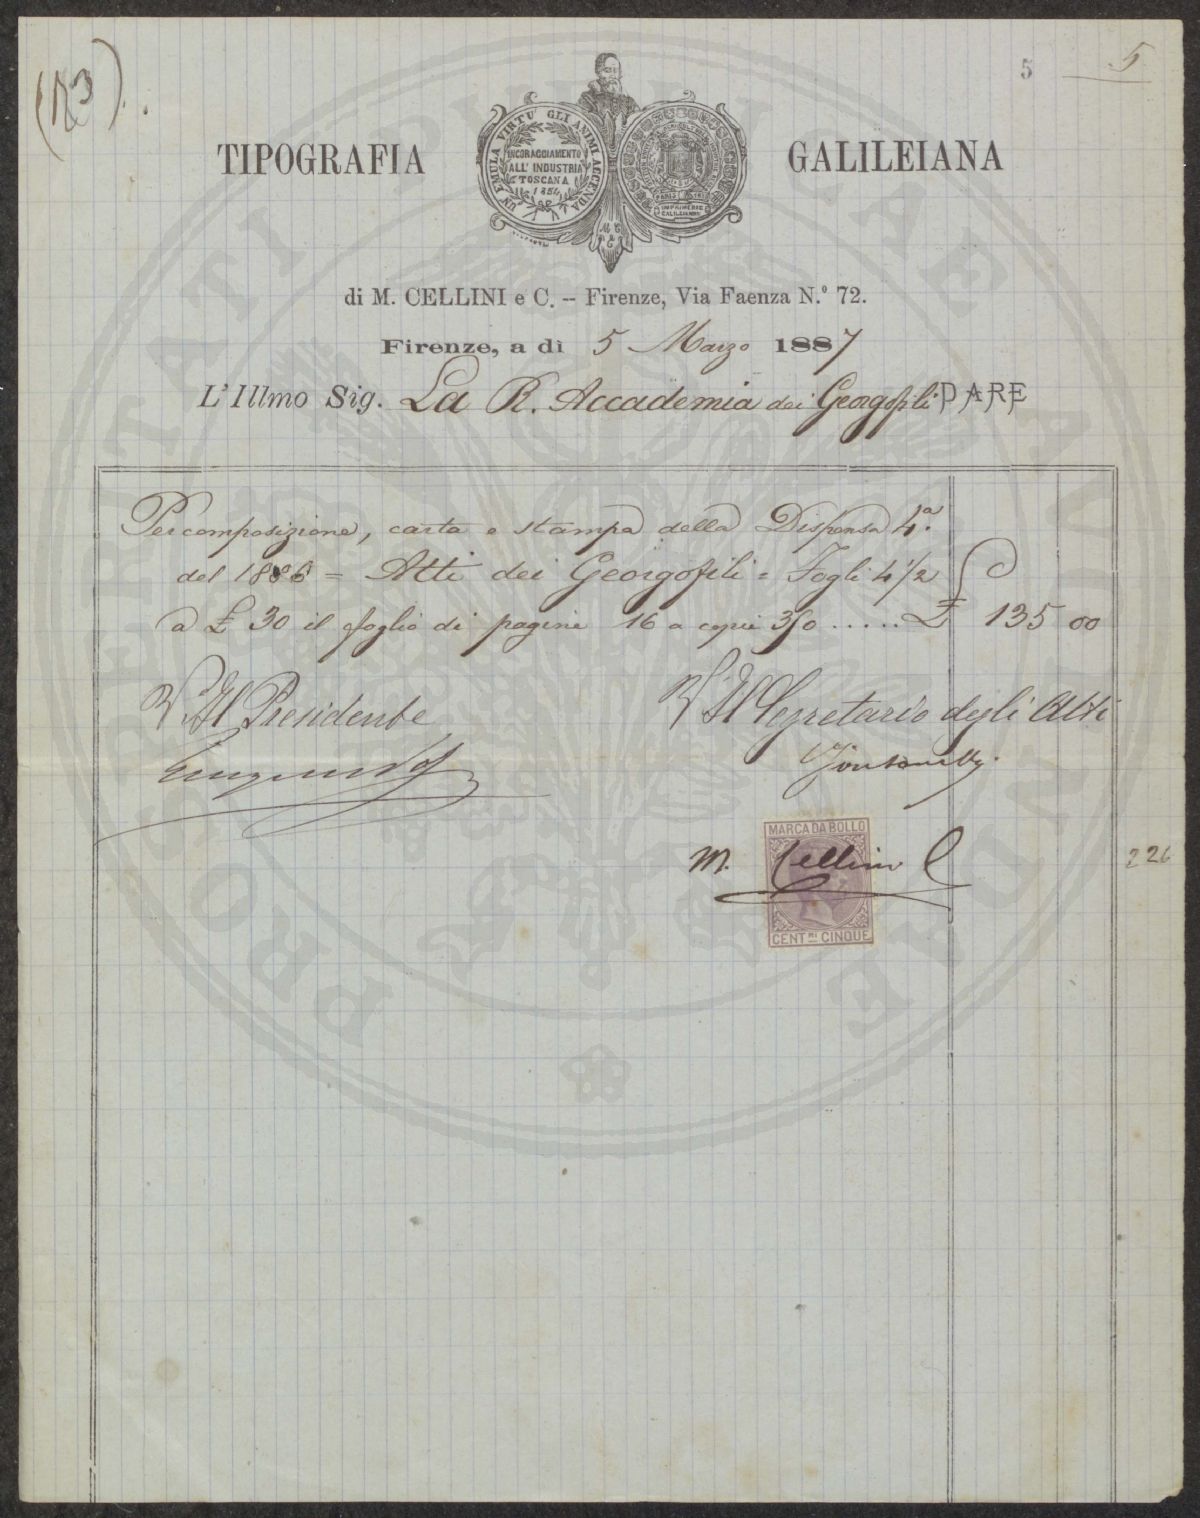 (N 3)
5 5
TIPOGRAFIA GALILEIANA
UN EMULA VIRTU' GLI ANIMI ACCENDA
INCORAGGIAMENTO
ALL' INDUSTRIA
TOSCANA
1854
PARIS
IMPRIMERIE
GALILEIENNE
di M. CELLINI e C. -- Firenze, Via Faenza N.º 72.
Firenze, a dì 5 Marzo 1887
L'Illmo Sig. La R. Accademia dei Georgofili DARE
Per composizione, carta e stampa della Dispensa 4ª.
del 1886 = Atti dei Georgofili = Fogli 4 1/2
a £ 30 il foglio di pagine 16 a copie 350 ..... £ 135 00
Vº Il Presidente Vº Il Segretario degli Atti
M. Cellini C
MARCA DA BOLLO
CENT.MI CINQUE
226
PROSPERITATI PUBLICAE AUGENDAE